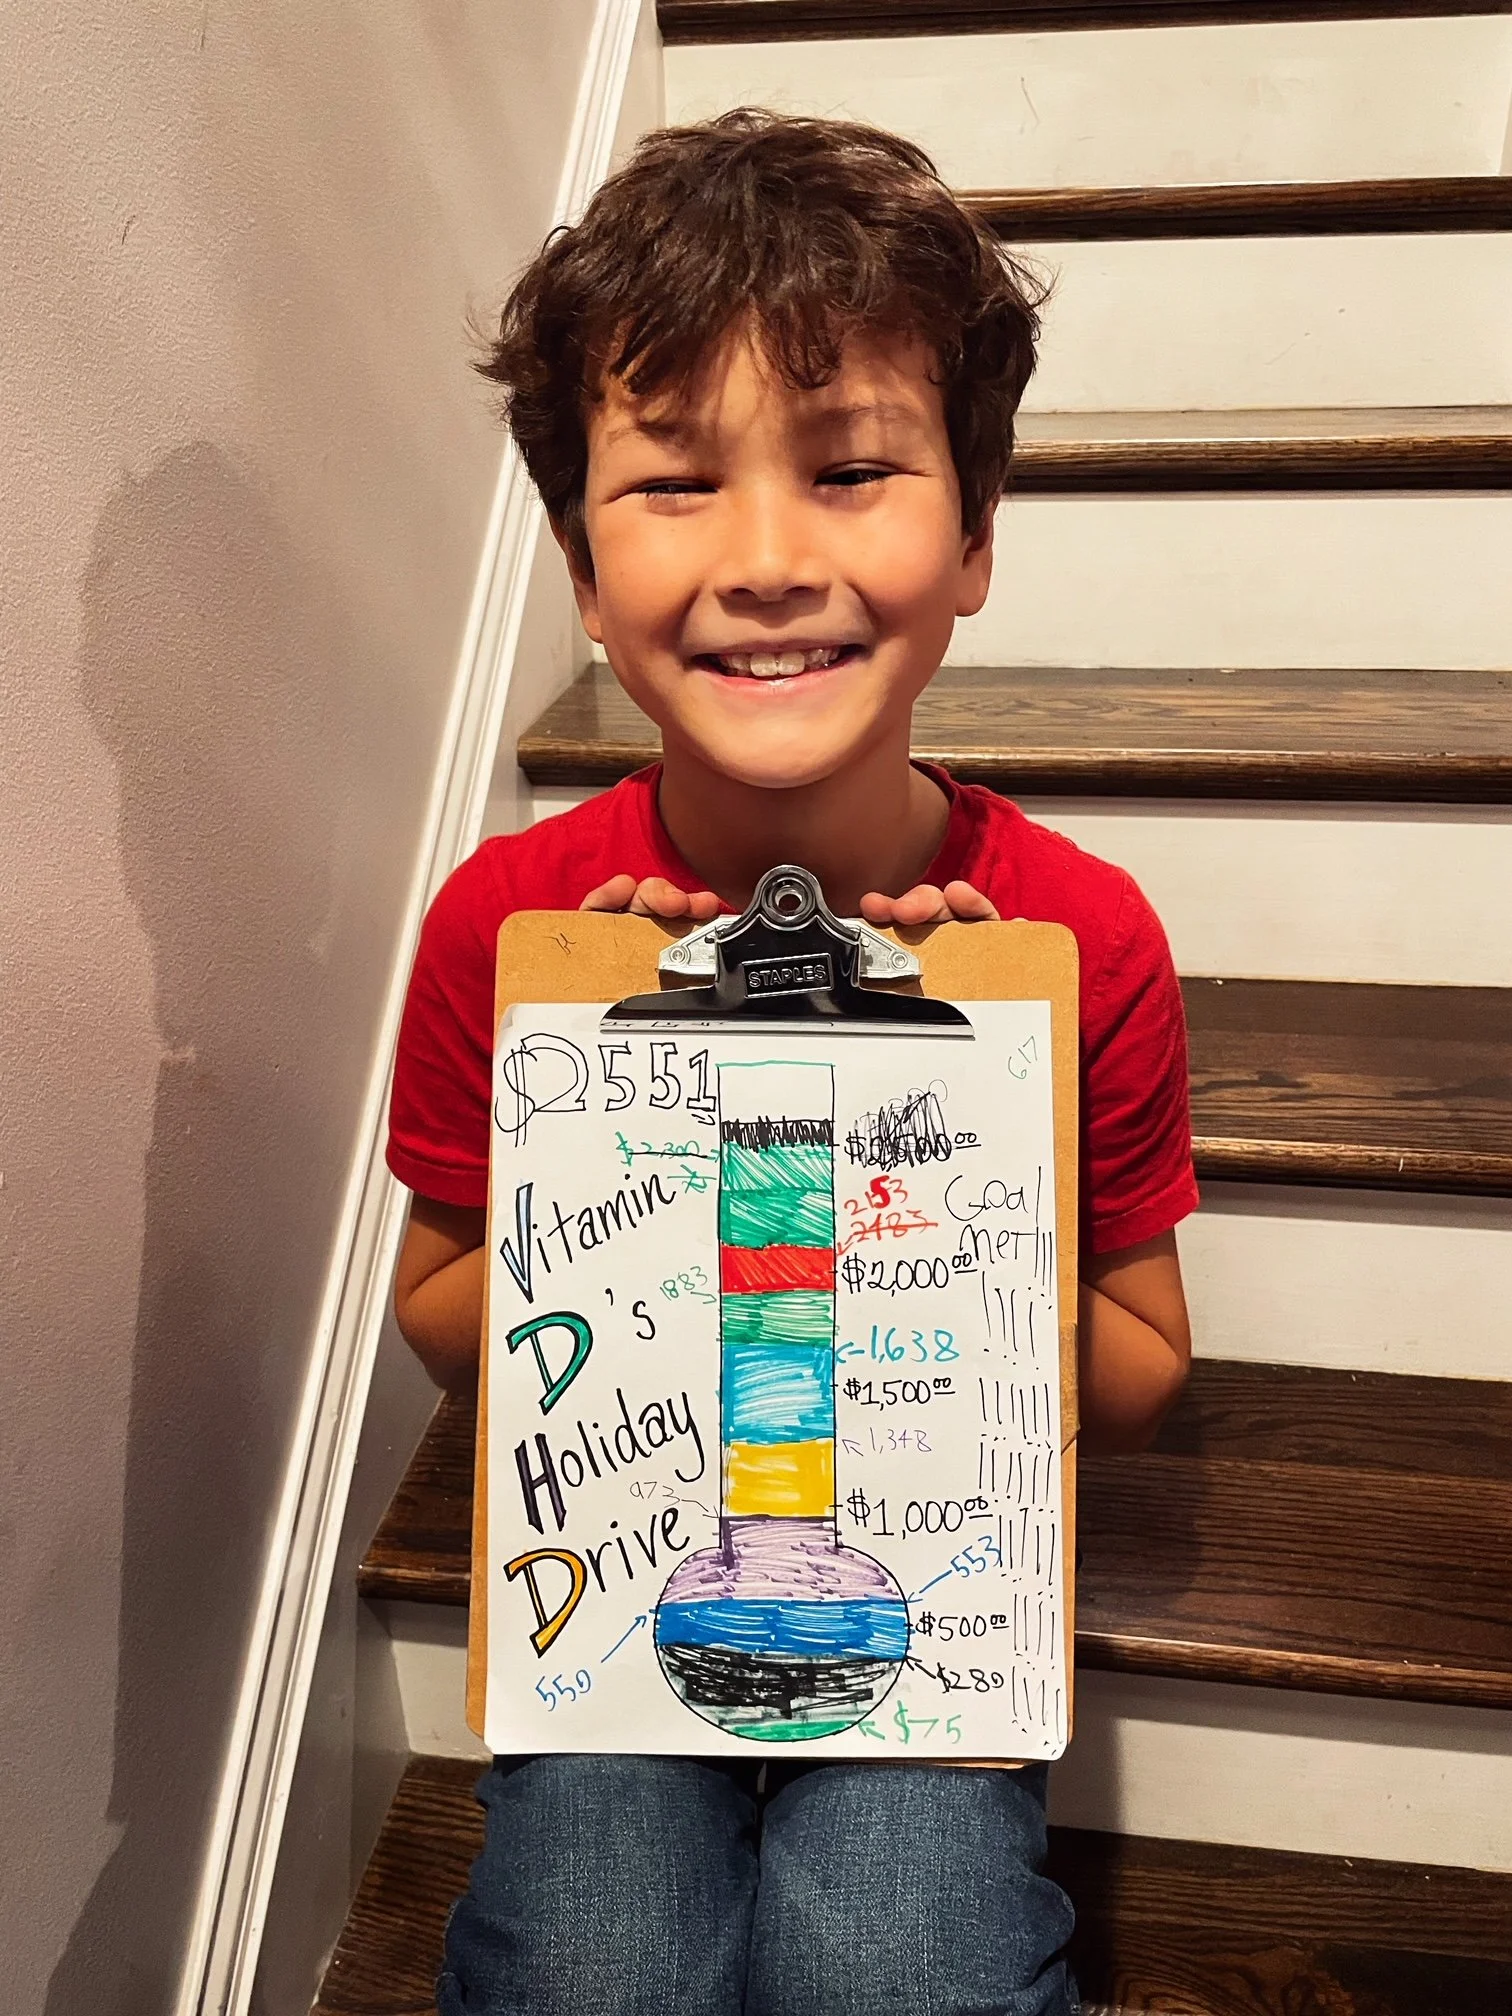 STAPLES
$2551
617
$2,500.00
$2,300
2153
2483
Goal
met!!!
Vitamin
D's
Holiday
Drive
1883
$2,000.00
1,638
$1,500.00
1,348
973
$1,000.00
553
$500.00
550
$280
$75